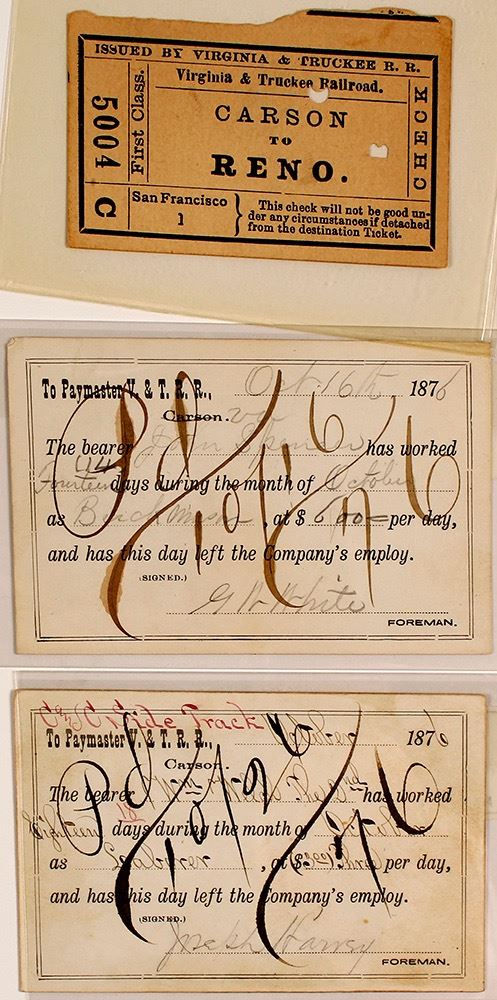 ISSUED BY VIRGINIA & TRUCKEE R. R.
Virginia & Truckee Railroad.
5004 C
First Class.
CARSON
TO
RENO.
CHECK
San Francisco
1
This check will not be good un-
der any circumstances if detached
from the destination Ticket.
To Paymaster V. & T. R. R., Oct. 16th 1876
Carson.
The bearer John Spencer has worked
Fourteen days during the month of October
as , at $ 6 00 per day,
and has this day left the Company's employ.
(SIGNED.)
G W White
FOREMAN.
Pd 10/16/76
C & C Side Track
To Paymaster V. & T. R. R., October 1876
Carson.
The bearer Wm has worked
Eighteen days during the month of October
as Laborer , at $ Three per day,
and has this day left the Company's employ.
(SIGNED.)
Joseph Harvey
FOREMAN.
Pd 10/26/76